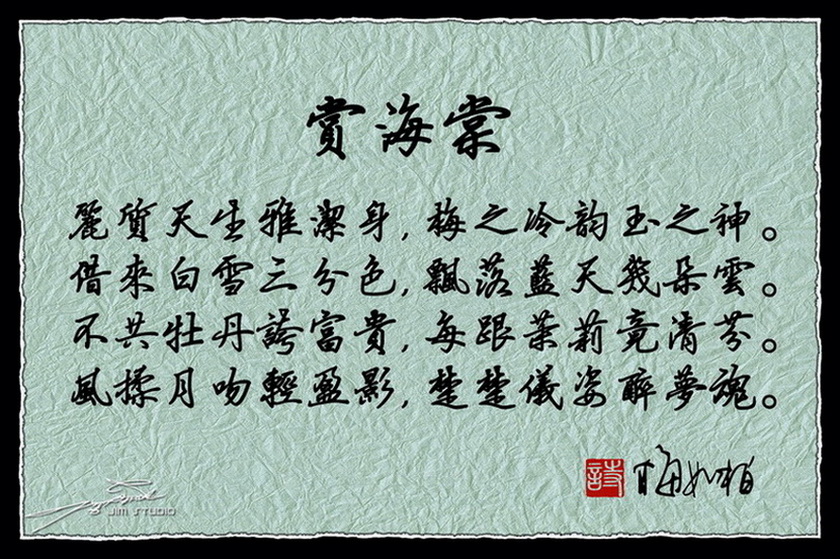 賞海棠
麗質天生雅潔身,梅之冷韵玉之神。
借來白雪三分色,飄落藍天幾朵雲。
不共牡丹誇富貴,每跟茉莉竟清芬。
風揉月吻輕盈影,楚楚儀姿醉夢魂。
詩 梅如柏
JIM STUDIO